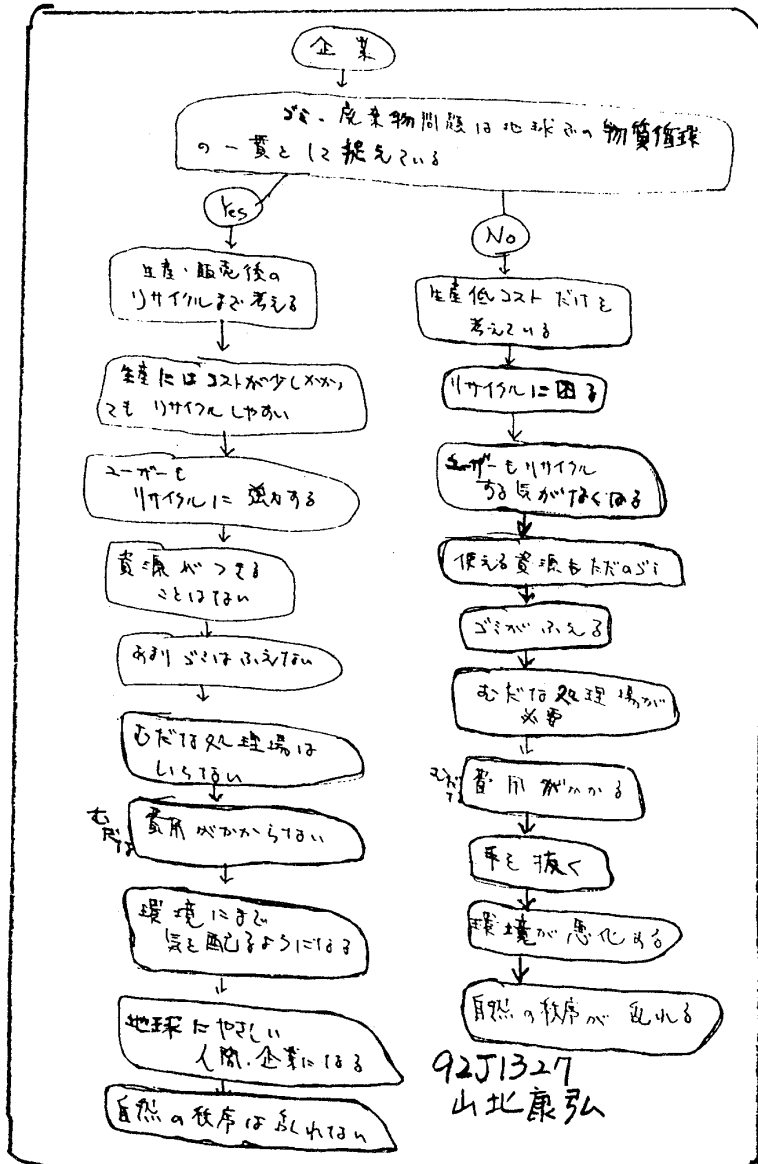 企業
ゴミ、廃棄物問題は地球での物質循環
の一貫として捉えている
Yes
生産・販売後の
リサイクルまで考える
生産にはコストが少しかかっ
ても リサイクルしやすい
ユーザーも
リサイクルに強力する
資源がつきる
ことはない
あまりゴミはふえない
むだな処理場は
いらない
むだな
費用がかからない
環境にまで
気を配るようになる
地球にやさしい
人間、企業になる
自然の秩序は乱れない
No
生産低コストだけを
考えている
リサイクルに困る
ユーザーもリサイクル
する気がなくなる
使える資源もただのゴミ
ゴミがふえる
むだな処理場が
必要
むだな
費用がかかる
手を抜く
環境が悪化する
自然の秩序が乱れる
92J1327
山北康弘